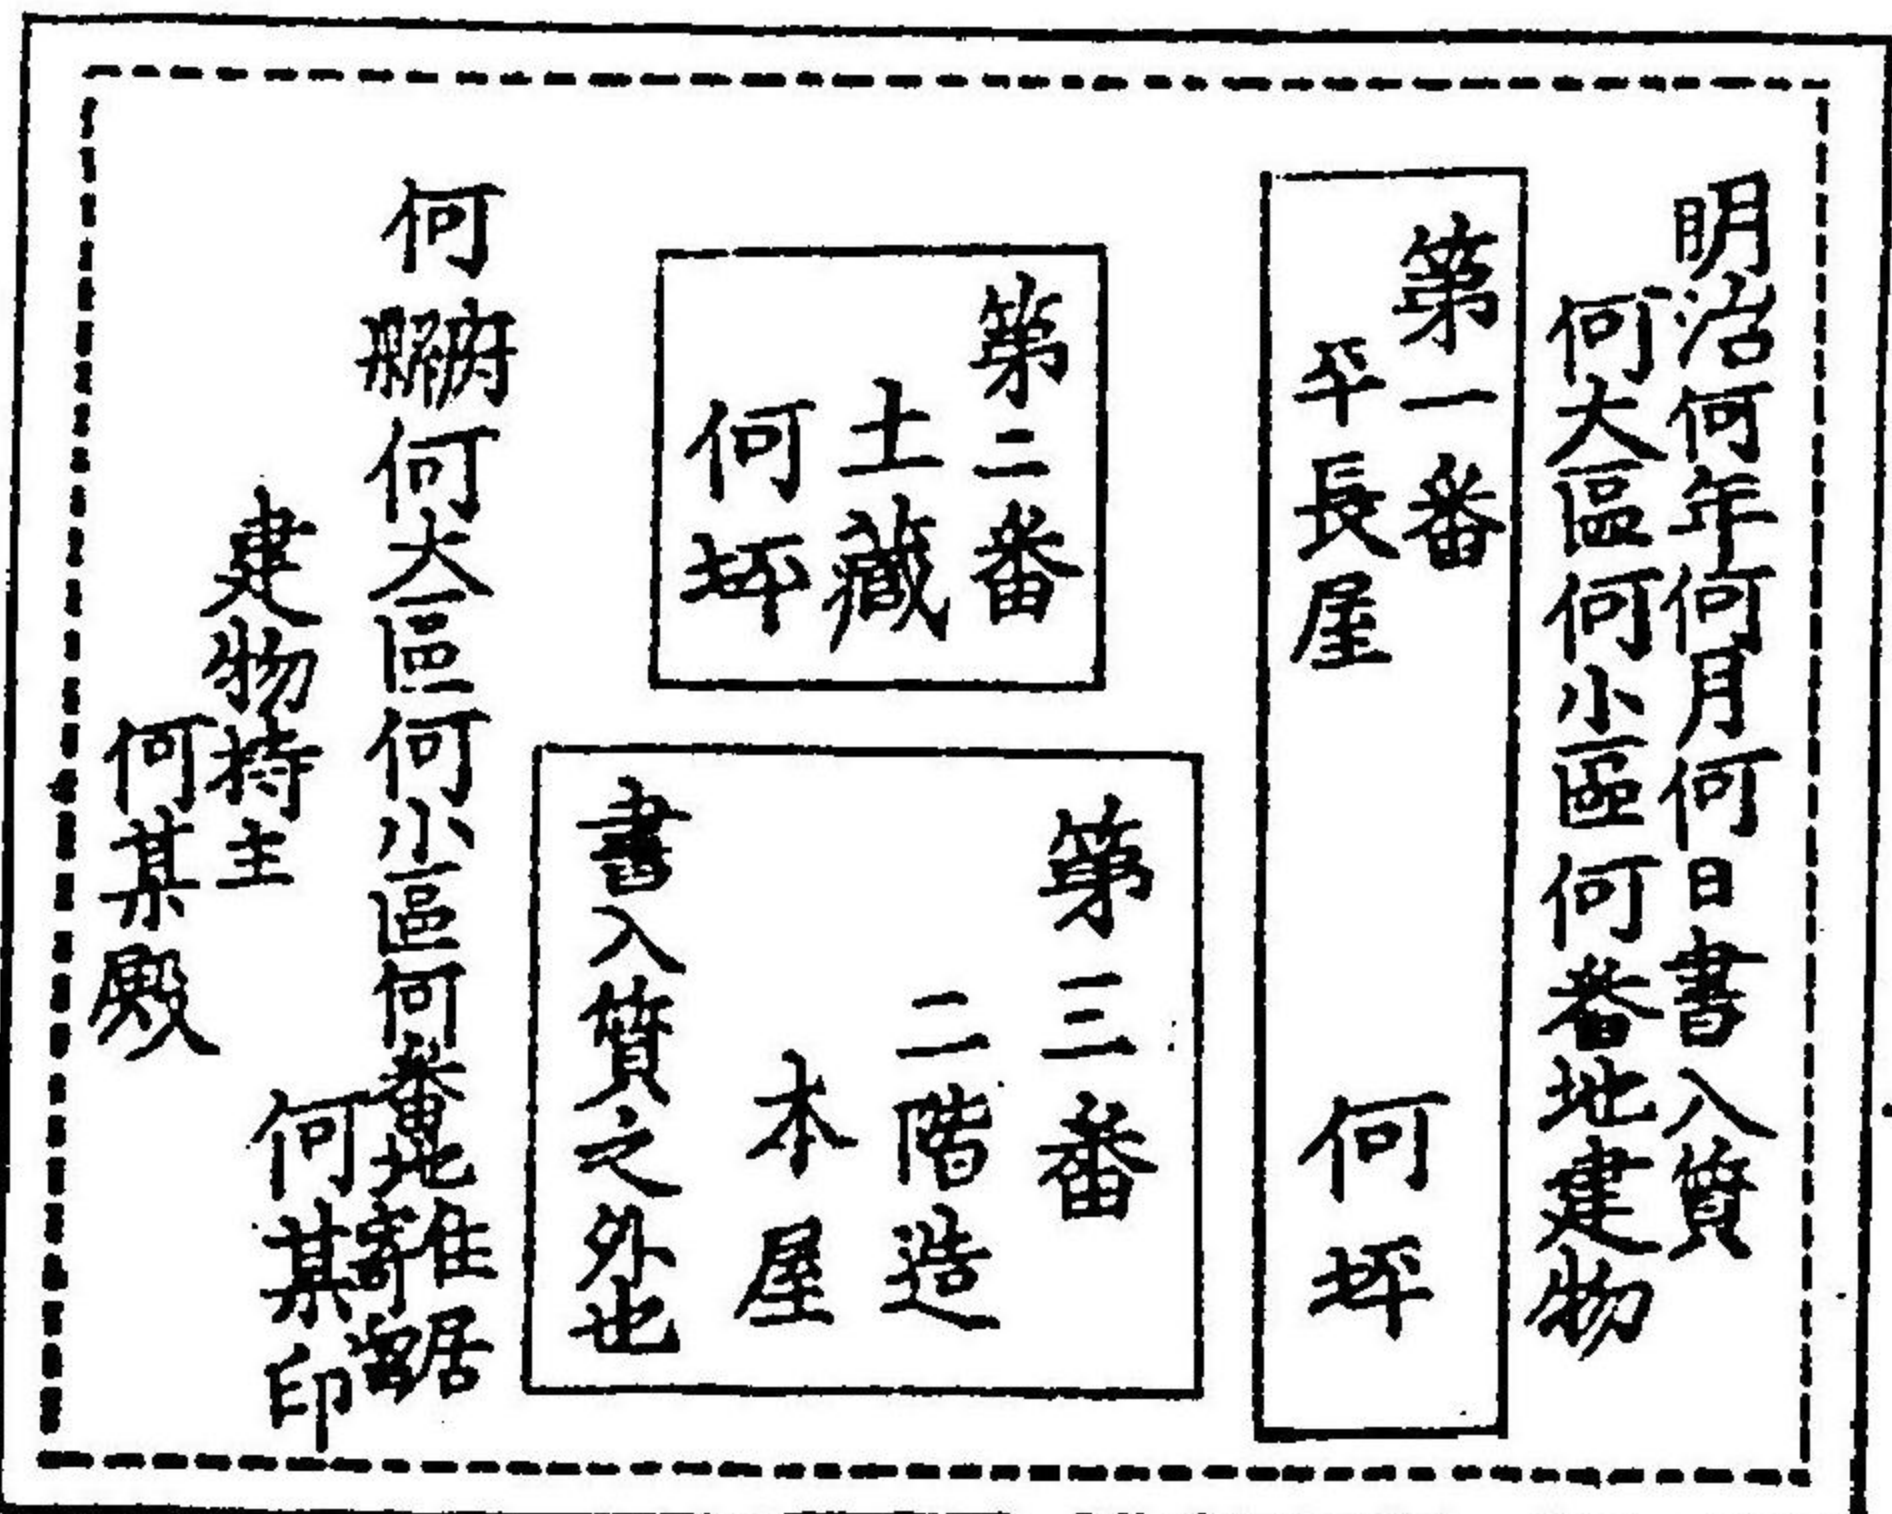 明治何年何月何日書入質
何大區何小區何番地建物
第一番
平長屋　何坪
第二番
土藏
何坪
第三番
二階造
本屋
書入質之外也
何府縣何大區何小區何番地住居寄留
何某印
建物持主
何某殿